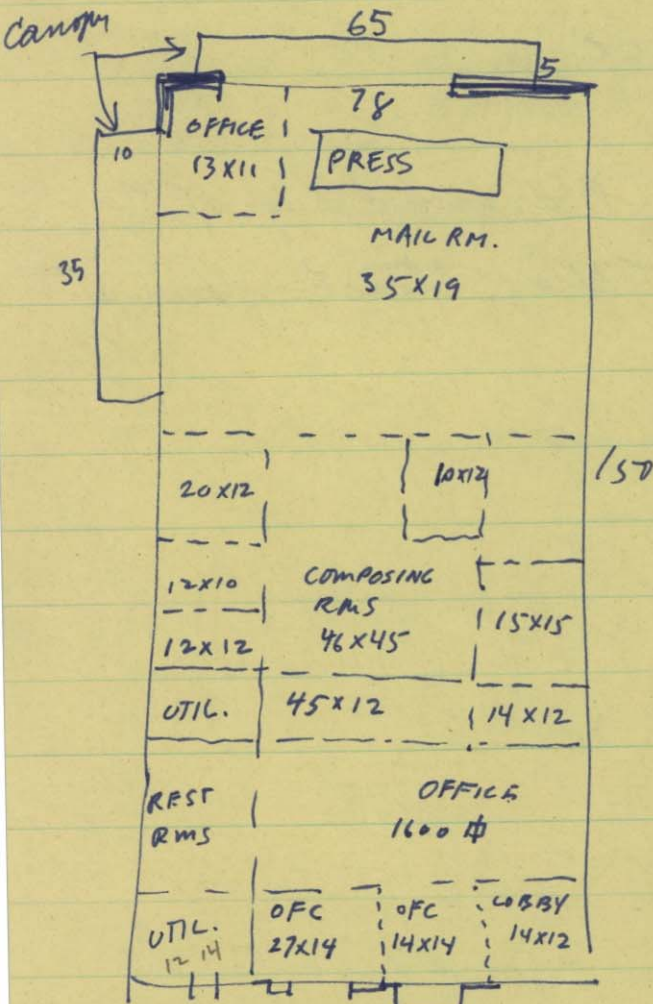 Canopy
65
5
78
OFFICE
13X11
10
PRESS
MAIL RM.
35X19
35
150
20X12
10X12
12X10
COMPOSING
RMS
46X45
12X12
15X15
UTIL.
45X12
14X12
REST
RMS
OFFICE
1600
UTIL.
12 14
OFC
27X14
OFC
14X14
LOBBY
14X12